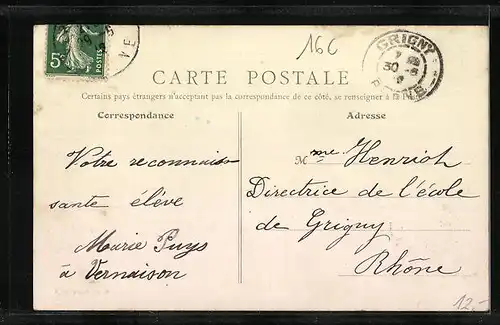 16C
5c
GRIGNY
30 - 8
RHÔNE
CARTE POSTALE
Certains pays étrangers n'acceptant pas la correspondance de ce côté, se renseigner à la Poste
Correspondance
Adresse
Votre reconnais
sante élève
Marie Puys
à Vernaison
Mme Henrioh
Directrice de l'école
de Grigny
Rhône
12,-